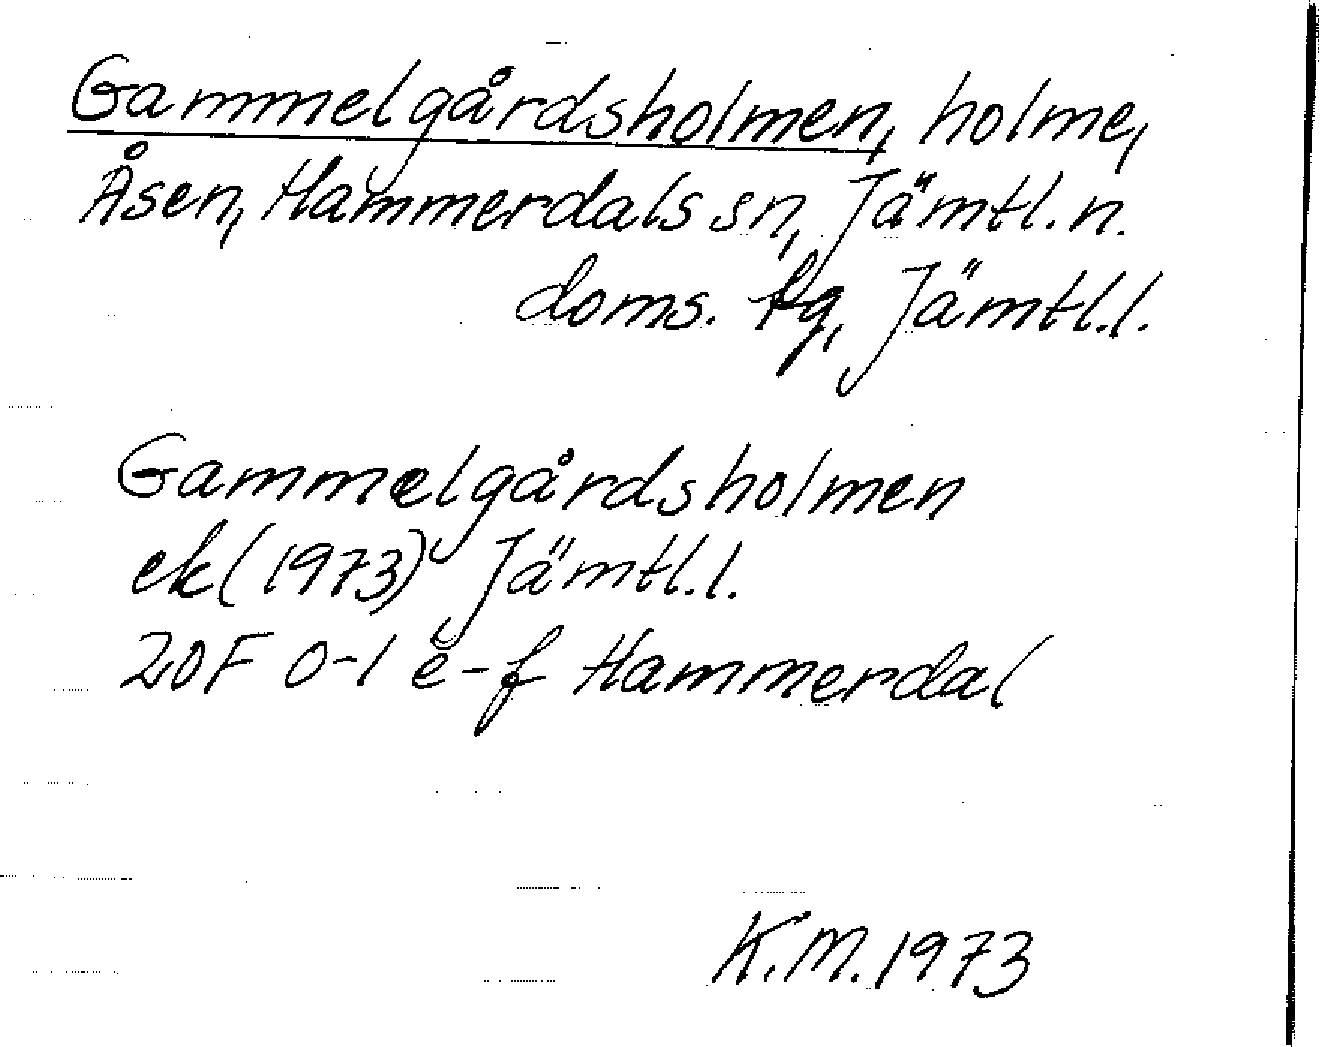 Gammelgårdsholmen, holme,
Åsen, Hammerdals sn, Jämtl. n.
doms. fg, Jämtl.l.
Gammelgårdsholmen
ek (1973) Jämtl.l.
20F 0-1 e-f Hammerdal
K.M. 1973